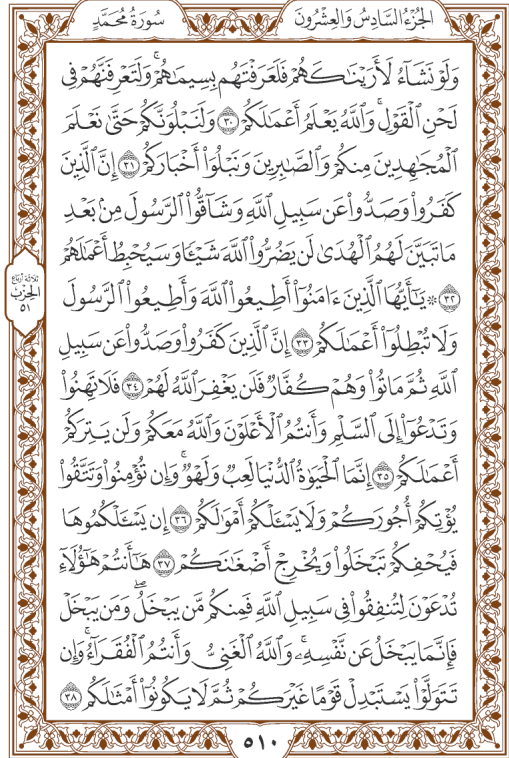 الجزء السادس والعشرون
سورة محمد
وَلَوْ نَشَآءُ لَأَرَيْنَٰكَهُمْ فَلَعَرَفْتَهُم بِسِيمَٰهُمْۚ وَلَتَعْرِفَنَّهُمْ فِى
لَحْنِ ٱلْقَوْلِۚ وَٱللَّهُ يَعْلَمُ أَعْمَٰلَكُمْ ٣٠ وَلَنَبْلُوَنَّكُمْ حَتَّىٰ نَعْلَمَ
ٱلْمُجَٰهِدِينَ مِنكُمْ وَٱلصَّٰبِرِينَ وَنَبْلُوَا۟ أَخْبَارَكُمْ ٣١ إِنَّ ٱلَّذِينَ
كَفَرُوا۟ وَصَدُّوا۟ عَن سَبِيلِ ٱللَّهِ وَشَآقُّوا۟ ٱلرَّسُولَ مِنۢ بَعْدِ
مَا تَبَيَّنَ لَهُمُ ٱلْهُدَىٰ لَن يَضُرُّوا۟ ٱللَّهَ شَيْـًٔا وَسَيُحْبِطُ أَعْمَٰلَهُمْ
٣٢ ۞ يَٰٓأَيُّهَا ٱلَّذِينَ ءَامَنُوٓا۟ أَطِيعُوا۟ ٱللَّهَ وَأَطِيعُوا۟ ٱلرَّسُولَ
وَلَا تُبْطِلُوٓا۟ أَعْمَٰلَكُمْ ٣٣ إِنَّ ٱلَّذِينَ كَفَرُوا۟ وَصَدُّوا۟ عَن سَبِيلِ
ٱللَّهِ ثُمَّ مَاتُوا۟ وَهُمْ كُفَّارٌ فَلَن يَغْفِرَ ٱللَّهُ لَهُمْ ٣٤ فَلَا تَهِنُوا۟
وَتَدْعُوٓا۟ إِلَى ٱلسَّلْمِ وَأَنتُمُ ٱلْأَعْلَوْنَ وَٱللَّهُ مَعَكُمْ وَلَن يَتِرَكُمْ
أَعْمَٰلَكُمْ ٣٥ إِنَّمَا ٱلْحَيَوٰةُ ٱلدُّنْيَا لَعِبٌ وَلَهْوٌۚ وَإِن تُؤْمِنُوا۟ وَتَتَّقُوا۟
يُؤْتِكُمْ أُجُورَكُمْ وَلَا يَسْـَٔلْكُمْ أَمْوَٰلَكُمْ ٣٦ إِن يَسْـَٔلْكُمُوهَا
فَيُحْفِكُمْ تَبْخَلُوا۟ وَيُخْرِجْ أَضْغَٰنَكُمْ ٣٧ هَٰٓأَنتُمْ هَٰٓؤُلَآءِ
تُدْعَوْنَ لِتُنفِقُوا۟ فِى سَبِيلِ ٱللَّهِ فَمِنكُم مَّن يَبْخَلُۖ وَمَن يَبْخَلْ
فَإِنَّمَا يَبْخَلُ عَن نَّفْسِهِۦۚ وَٱللَّهُ ٱلْغَنِىُّ وَأَنتُمُ ٱلْفُقَرَآءُۚ وَإِن
تَتَوَلَّوْا۟ يَسْتَبْدِلْ قَوْمًا غَيْرَكُمْ ثُمَّ لَا يَكُونُوٓا۟ أَمْثَٰلَكُم ٣٨
ثلاثة أرباع
الحزب
٥١
٥١٠